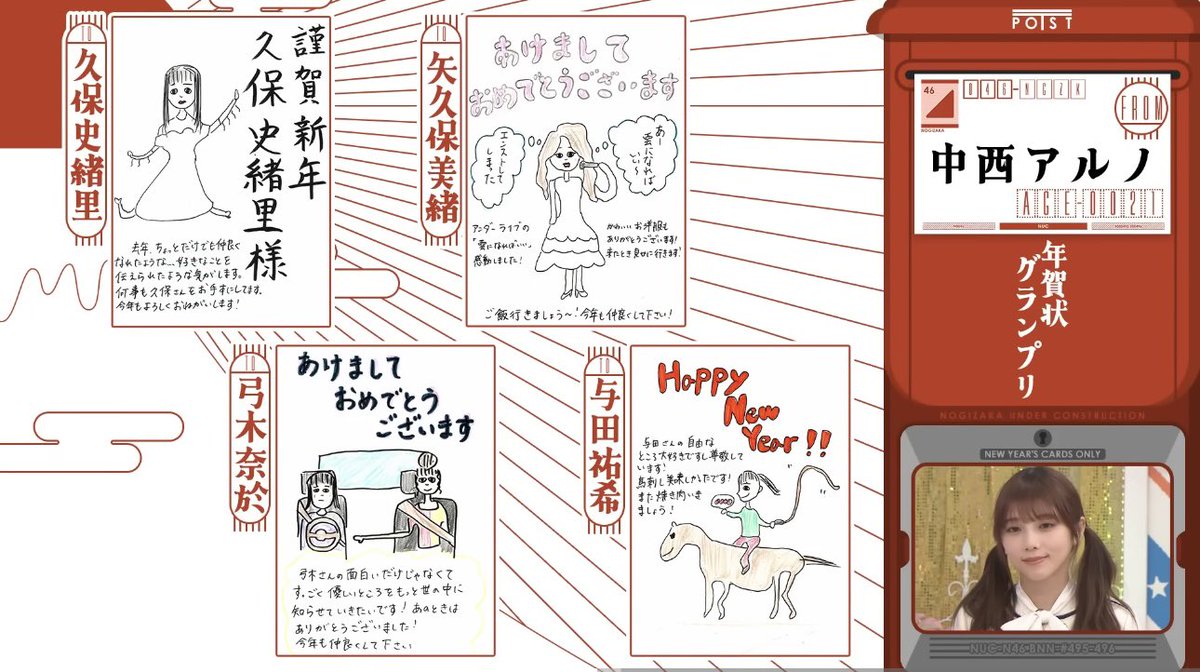 TO
久保史緒里
謹賀新年
久保史緒里様
去年、ちょっとだけでも仲良く
なれたような…好きなことを
伝えられたような気がします。
何事も久保さんをお手本にしてます。
今年もよろしくおねがいします!
TO
矢久保美緒
あけまして
おめでとうございます
エンストして
しまった
あー
雲になれば
いい〜
アンダーライブの
「雲になればいい」
感動しました!
かわいいお洋服も
ありがとうございます!
ご飯行きましょう〜!今年も仲良くして下さい!
TO
弓木奈於
あけまして
おめでとう
ございます
弓木さんの面白いだけじゃなくて
すっごく優しいところをもっと世の中に
知らせていきたいです!あのときは
ありがとうございました!
今年も仲良くして下さい
TO
与田祐希
Happy
New
Year!!
与田さんの自由な
ところ大好きですし尊敬して
います!
馬刺し美味しかったです!
また焼き肉いき
ましょう!
POIST
46
NOGIZAKA
846-NGZK
FROM
中西アルノ
AGE-0021
NUC
年賀状
グランプリ
NOGIZAKA UNDER CONSTRUCTION
NEW YEAR'S CARDS ONLY
NUC-N46 BNN-#495-496